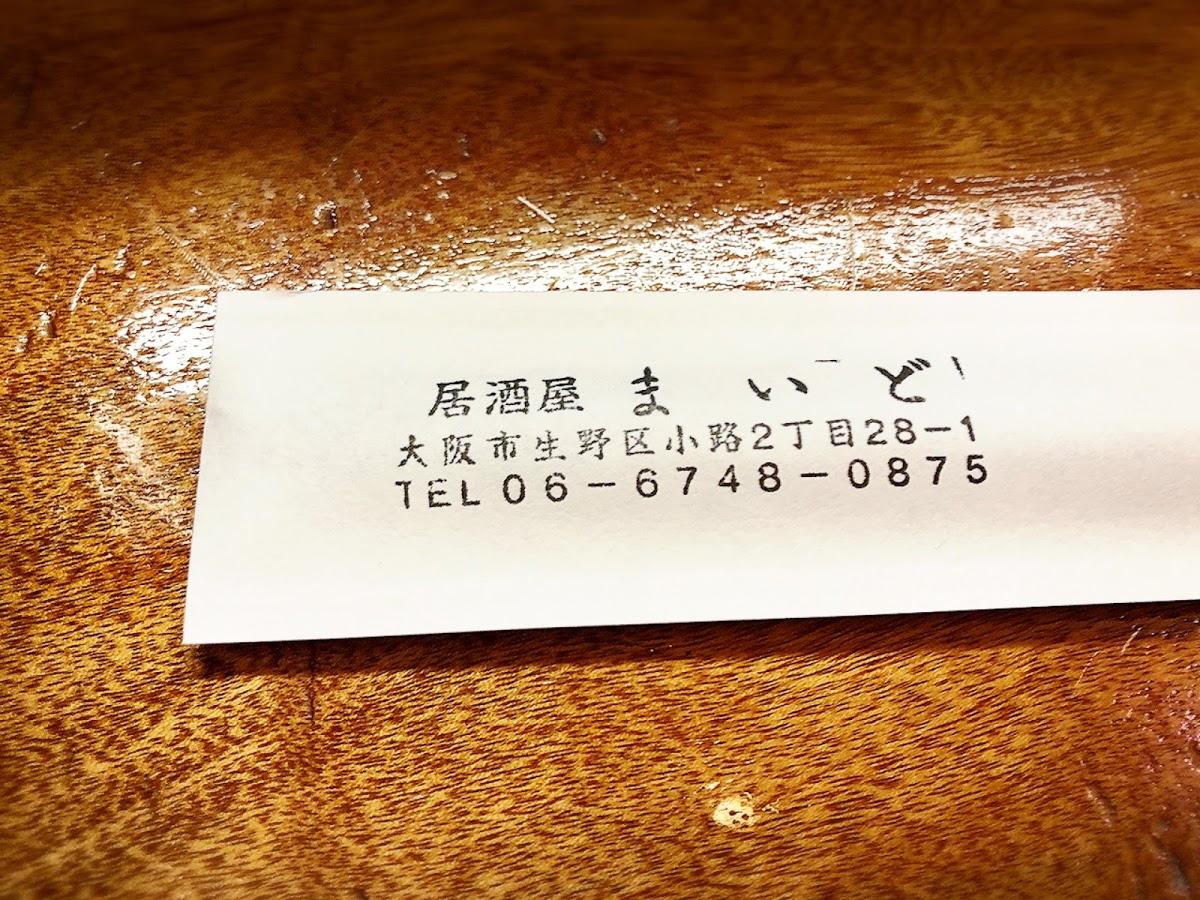 居酒屋 まいど
大阪市生野区小路2丁目28-1
TEL 06-6748-0875